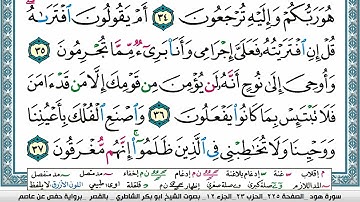 هُوَ رَبُّكُمْ وَإِلَيْهِ تُرْجَعُونَ ٣٤ أَمْ يَقُولُونَ ٱفْتَرَىٰهُ
قُلْ إِنِ ٱفْتَرَيْتُهُۥ فَعَلَىَّ إِجْرَامِى وَأَنَا۠ بَرِىٓءٌ مِّمَّا تُجْرِمُونَ ٣٥
وَأُوحِىَ إِلَىٰ نُوحٍ أَنَّهُۥ لَن يُؤْمِنَ مِن قَوْمِكَ إِلَّا مَن قَدْ ءَامَنَ
فَلَا تَبْتَئِسْ بِمَا كَانُوا۟ يَفْعَلُونَ ٣٦ وَٱصْنَعِ ٱلْفُلْكَ بِأَعْيُنِنَا
وَوَحْيِنَا وَلَا تُخَٰطِبْنِى فِى ٱلَّذِينَ ظَلَمُوٓا۟ إِنَّهُم مُّغْرَقُونَ ٣٧
سورة هود - الصفحة ٢٢٥ - الحزب ٢٣ - الجزء ١٢ - بصوت الشيخ أبو بكر الشاطري - بالقصر - برواية حفص عن عاصم